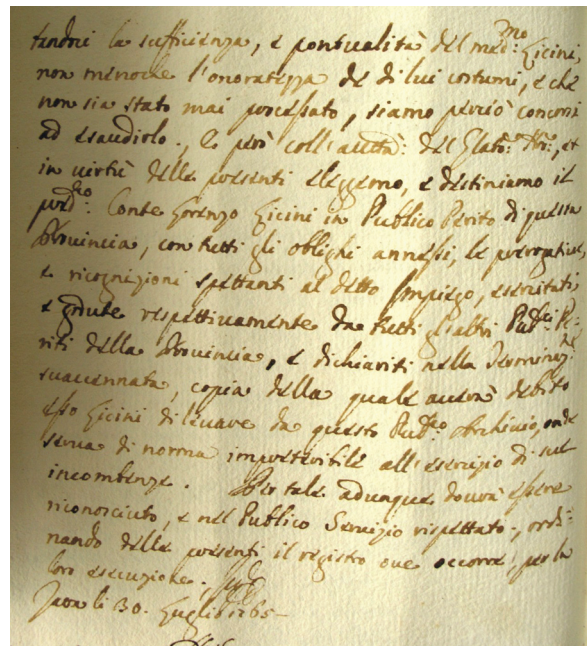 tandoci la sufficienza, e pontualità del med:mo Licini,
non menoche l'onoratezza de di lui costumi, e che
non sia stato mai processato, siamo perciò concorsi
ad esaudirlo., e però coll'autt:à del Mag:to Nr̃o:, et
in virtù della presenti elegemo, e destiniamo il
pred:to Conte Lorenzo Licini in Publico Perito di questa
Provincia, con tutti gli oblighi annessi, le prerogative,
e ricognizioni spettanti al detto Impiego, esercitati,
e godute respettivamente da tutti gl'altri Pub:ci Pe:
riti della Provincia, e dichiariti nella
suaccennata, copia della quale averà debito
esso Licini di levare da questo Archivio, onde
serva di norma all'esercizio di sue
incombenze. Per tale adunque dovrà essere
riconosciuto, e nel Publico Servizio rispettato., ordi:
nando delle presenti il registro ove occorre per la
loro esecuzione,
li 30. Luglio 1765